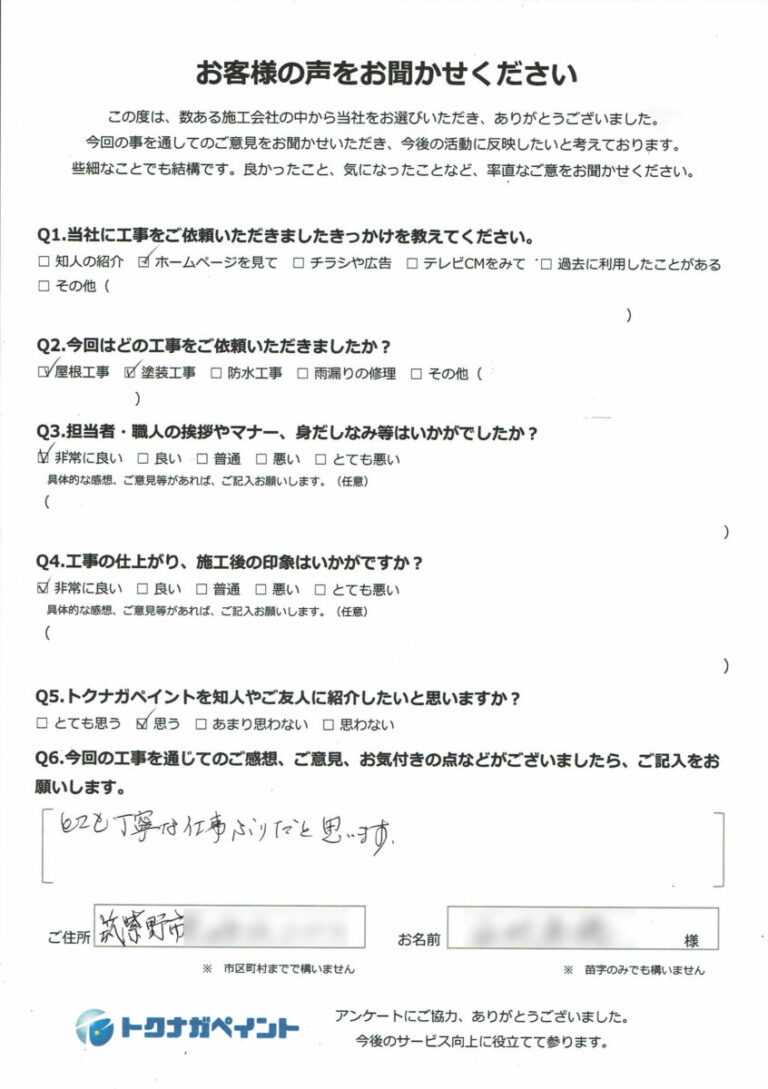 お客様の声をお聞かせください
この度は、数ある施工会社の中から当社をお選びいただき、ありがとうございました。
今回の事を通してのご意見をお聞かせいただき、今後の活動に反映したいと考えております。
些細なことでも結構です。良かったこと、気になったことなど、率直なご意をお聞かせください。
Q1.当社に工事をご依頼いただきましたきっかけを教えてください。
☐ 知人の紹介 ☑ ホームページを見て ☐ チラシや広告 ☐ テレビCMをみて ☐ 過去に利用したことがある
☐ その他（
）
Q2.今回はどの工事をご依頼いただきましたか？
☑ 屋根工事 ☑ 塗装工事 ☐ 防水工事 ☐ 雨漏りの修理 ☐ その他（
）
Q3.担当者・職人の挨拶やマナー、身だしなみ等はいかがでしたか？
☑ 非常に良い ☐ 良い ☐ 普通 ☐ 悪い ☐ とても悪い
具体的な感想、ご意見等があれば、ご記入お願いします。（任意）
（
）
Q4.工事の仕上がり、施工後の印象はいかがですか？
☑ 非常に良い ☐ 良い ☐ 普通 ☐ 悪い ☐ とても悪い
具体的な感想、ご意見等があれば、ご記入お願いします。（任意）
（
）
Q5.トクナガペイントを知人やご友人に紹介したいと思いますか？
☐ とても思う ☑ 思う ☐ あまり思わない ☐ 思わない
Q6.今回の工事を通じてのご感想、ご意見、お気付きの点などがございましたら、ご記入をお
願いします。
とても丁寧な仕事ぶりだと思います。
ご住所 筑紫野市 お名前 様
※ 市区町村までで構いません ※ 苗字のみでも構いません
トクナガペイント
アンケートにご協力、ありがとうございました。
今後のサービス向上に役立てて参ります。